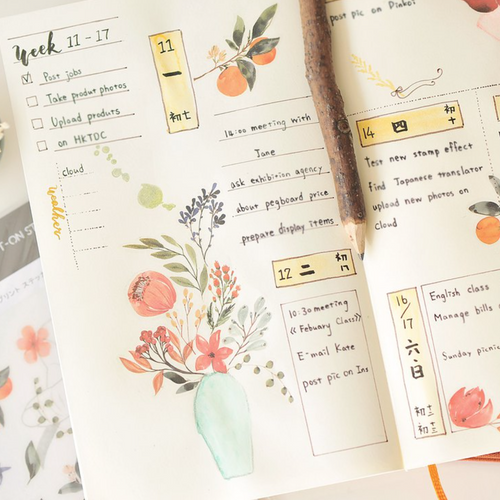 week 11 - 17
Post jobs
Take produt photos
Upload produts
on HKTDC
cloud
mother
11
一
初七
14:00 meeting with
Jane
ask exhibition agency
about pegboard price
prepare display items
12 二 初八
10:30 meeting
《Febuary Class》
E-mail Kate
post pic on Ins
post pic on Dinkoi
14 四 初十
test new stamp effect
find Japanese translator
upload new photos on
cloud
16/17
六·日
初十二
初十三
English class
Manage bills
Sunday picnic